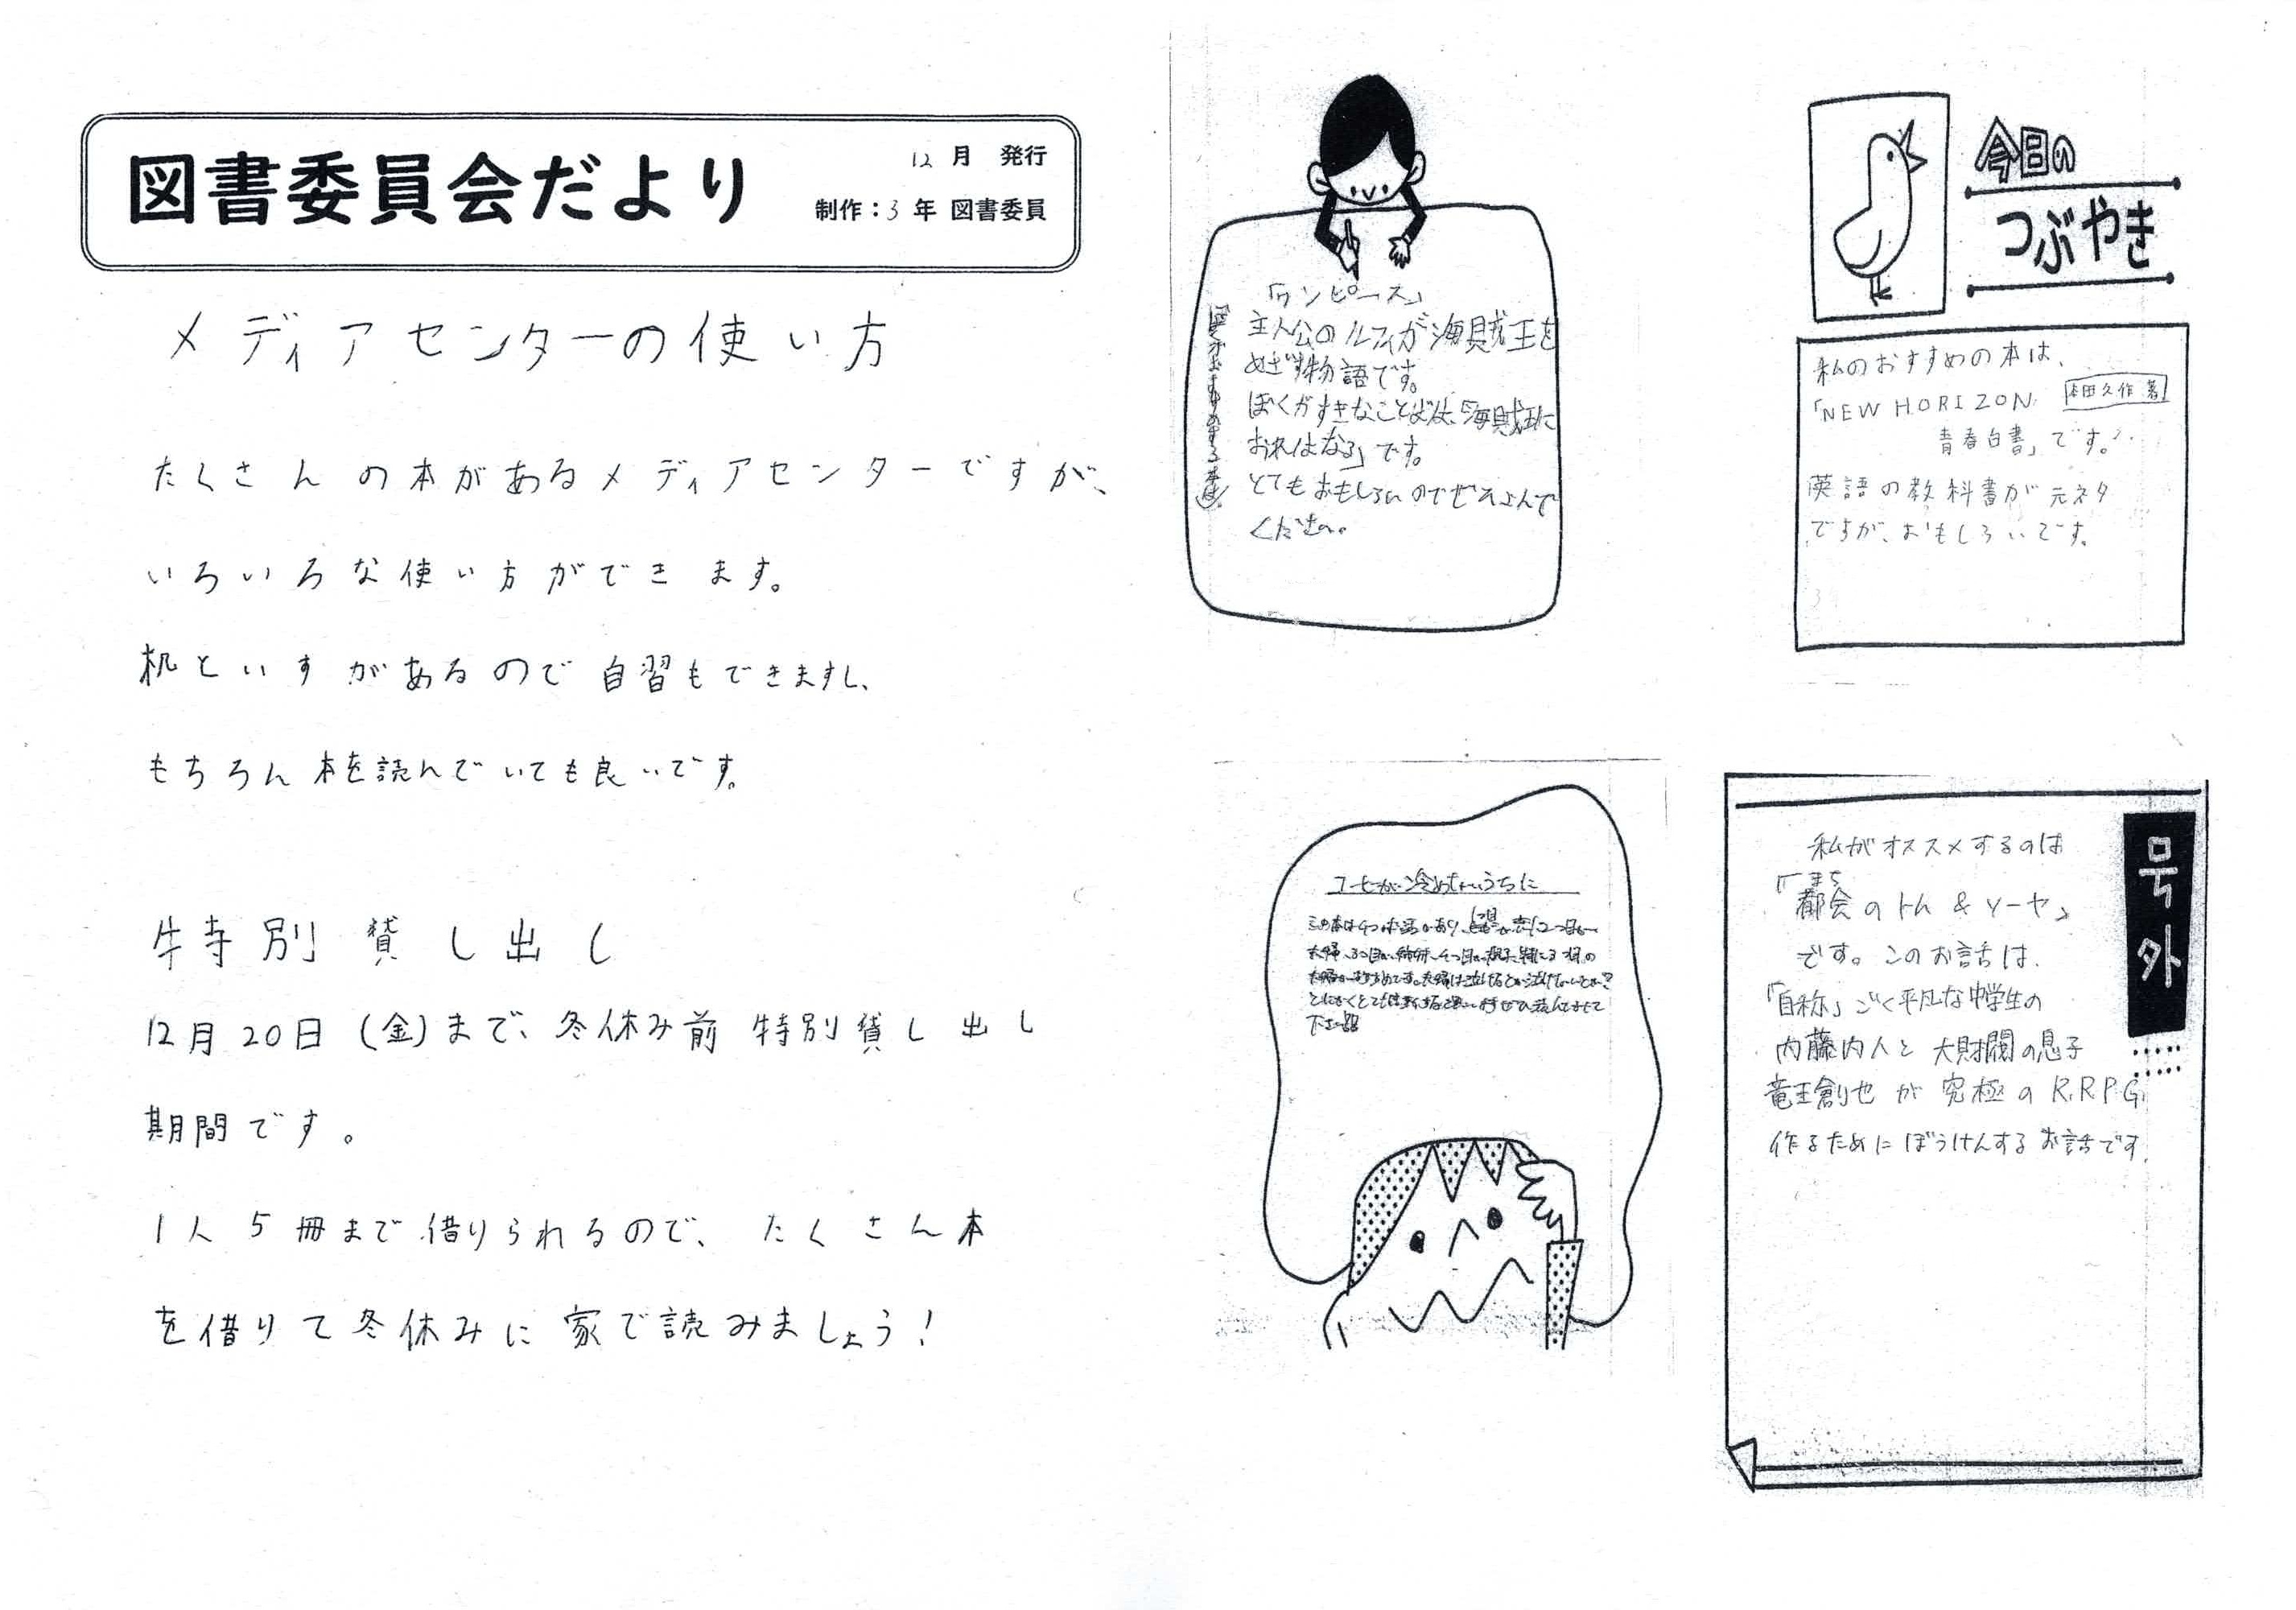 図書委員会だより
12月 発行
制作：3年 図書委員
メディアセンターの使い方
たくさんの本があるメディアセンターですが、
いろいろな使い方ができます。
机といすがあるので自習もできますし、
もちろん本を読んでいても良いです。
特別貸し出し
12月20日(金)まで、冬休み前特別貸し出し
期間です。
1人5冊まで借りられるので、たくさん本
を借りて冬休みに家で読みましょう!
「ワンピース」
主人公のルフィが海賊王を
めざす物語です。
ぼくがすきなことばは、「海賊王に
おれはなる」です。
とてもおもしろいのでぜひよんで
ください。
今日の
つぶやき
私のおすすめの本は、
「NEW HORIZON 本田久作 著
青春白書」です。
英語の教科書が元ネタ
ですが、おもしろいです。
コーヒーが冷めないうちに
この本は4つお話があり、
下さい
号外
私がオススメするのは
「都会のトム&ソーヤ」
まち
です。このお話は、
「自称」ごく平凡な中学生の
内藤内人と大財閥の息子
竜王創也が究極のR.RPG
作るためにぼうけんするお話です